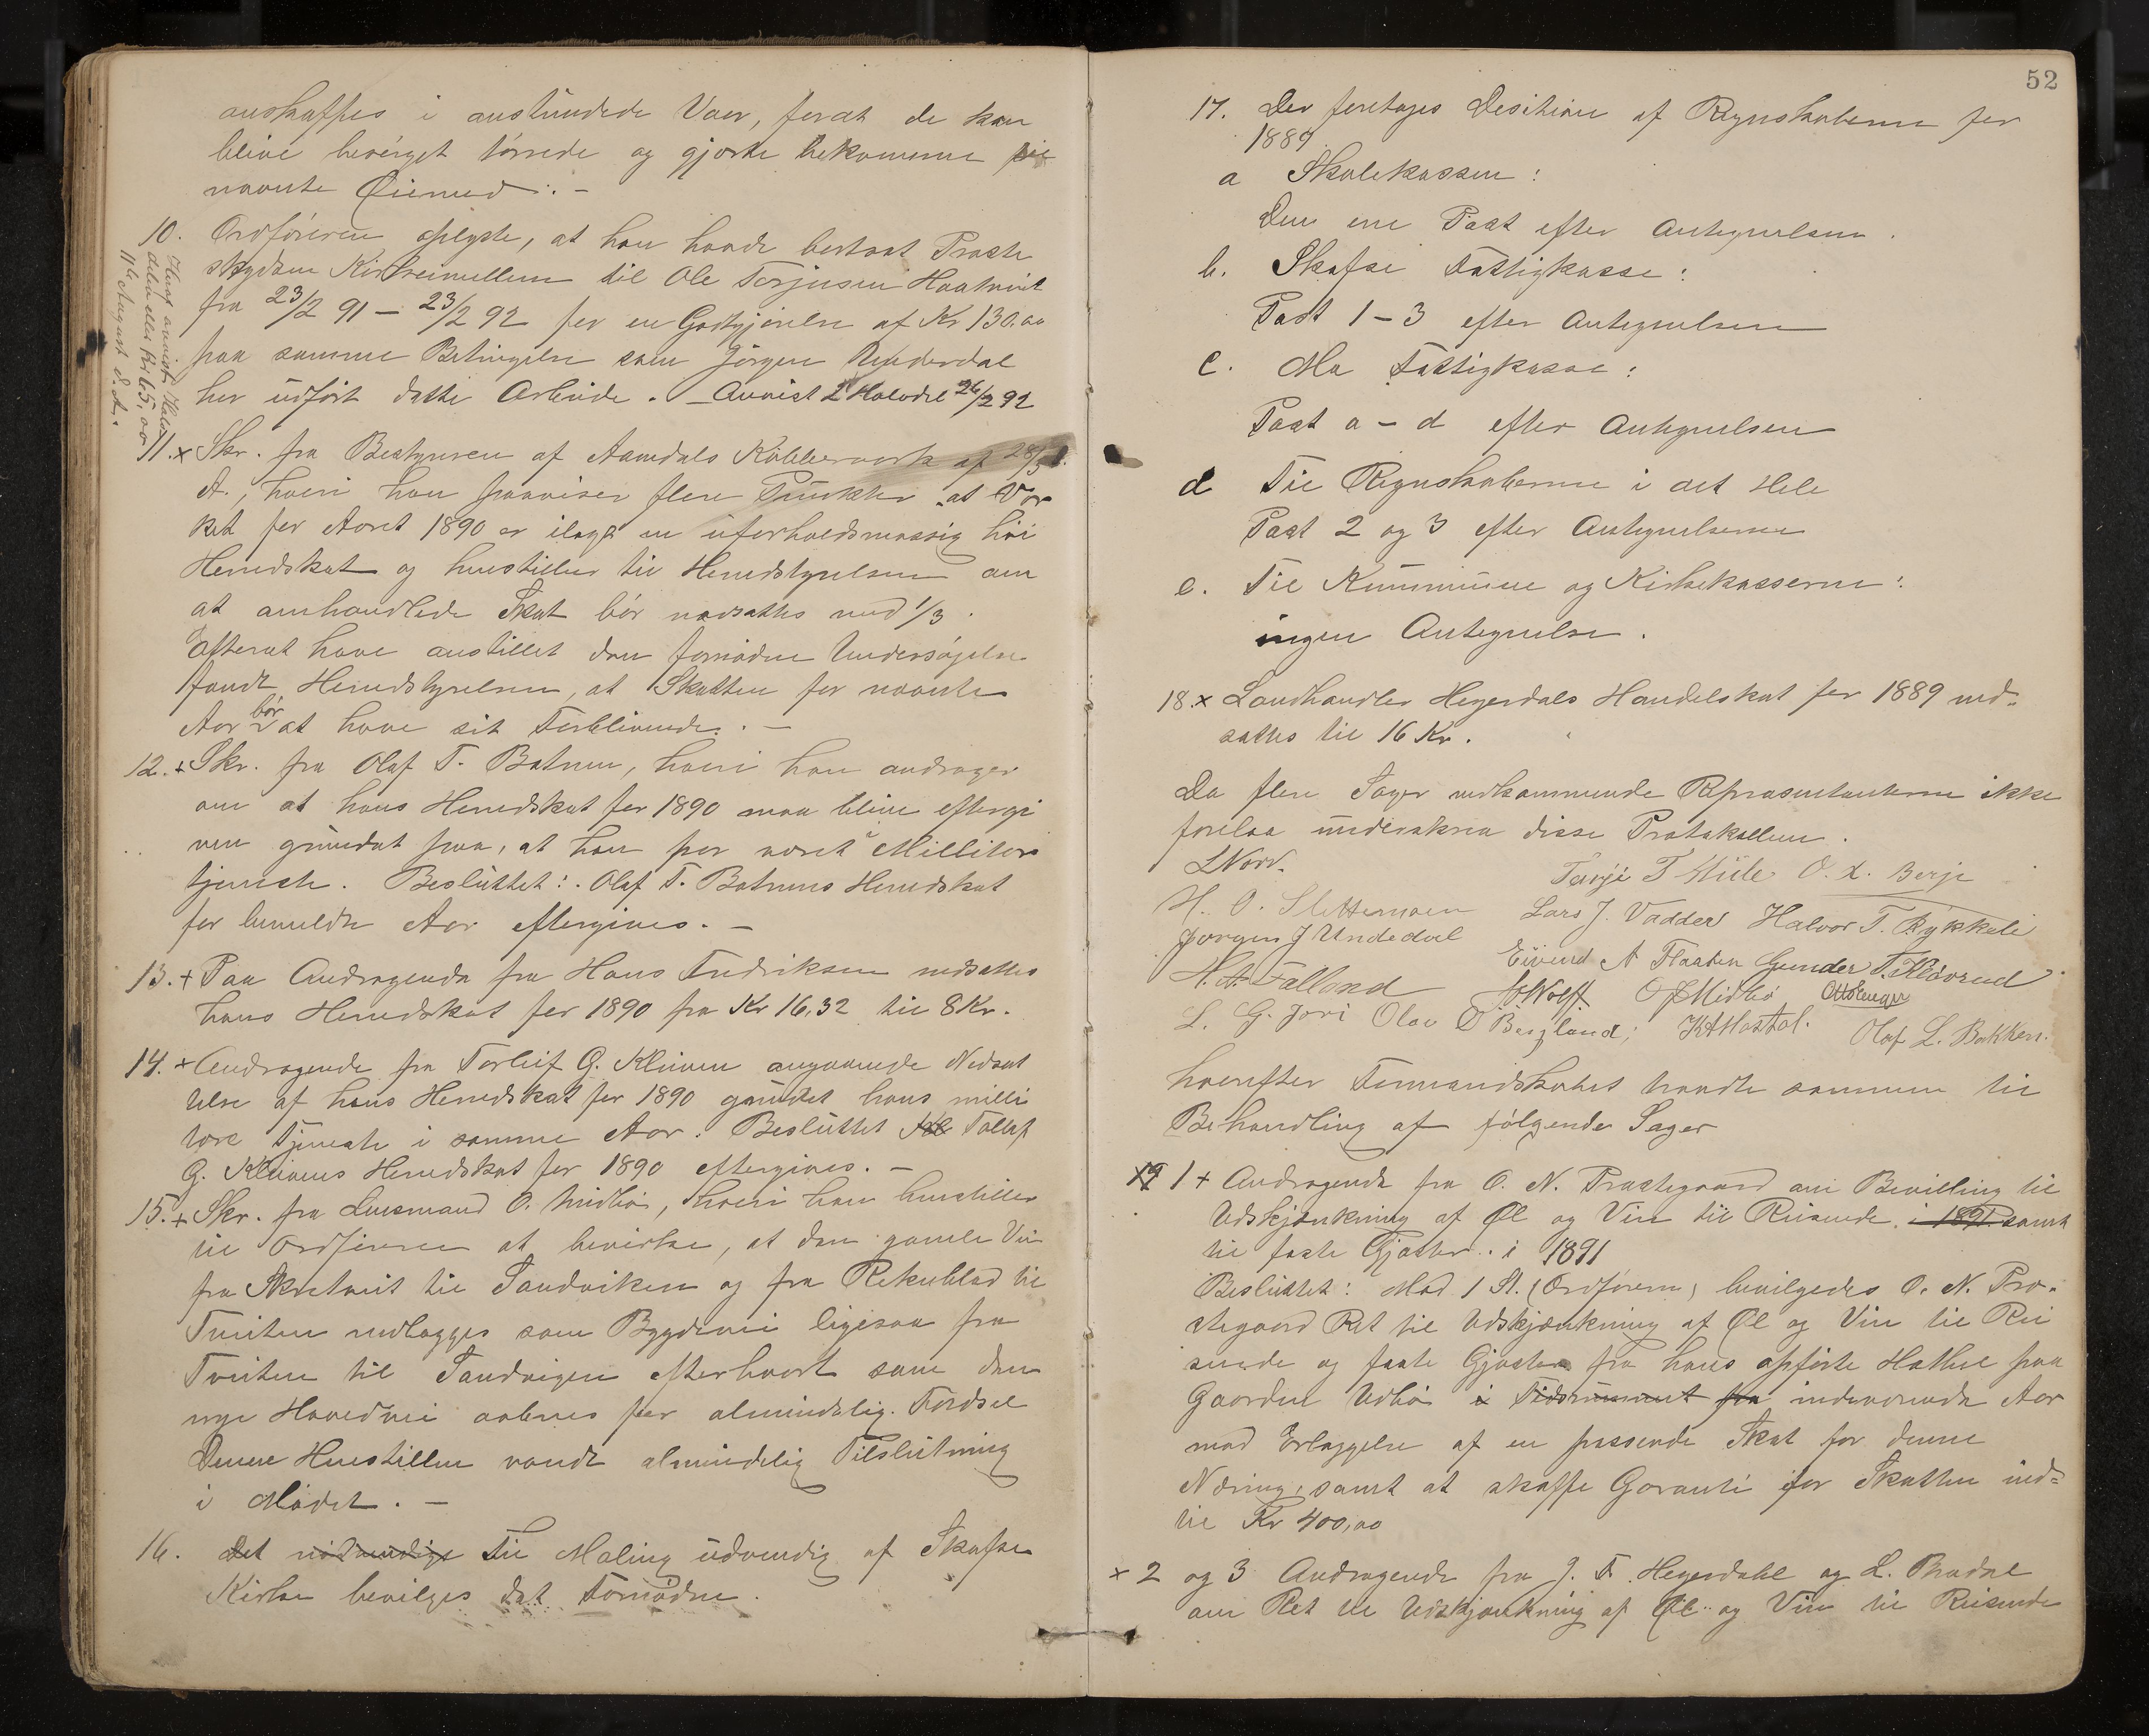 anskaffes i anstundede Vaer, forat de kan
blive beverget tørrede og gjorte bekvemme til
nævnte Øiemed. –
10. Ordføreren oplyste, at han havde bortsat Præste
skydsen Kirkeimellem til Ole Torjusen Haatveit
fra 23/2 91 – 23/2 92 for en Godtgjørelse af Kr 130,00
paa samme Betingelse som Jørgen Underdal
her udført dette Arbeide. – Anvist 2 Halvdel 26/2 92
Heraf anvist Halv
delen eller Kr 65,00
11te August d. A.
11. x Skr. fra Bestyreren af Aamdals Kobberverk af 28/3 d.
A., hvori han paaviser flere Punkter at Vær
ket for Aaret 1890 er ilagt en uforholdsmæssig høi
Herredskat og henstiller til Herredstyrelsen om
at omhandlede Skat bør nedsættes med 1/3.
Efterat have anstillet den fornødne Undersøgelse
fandt Herredstyrelsen, at Skatten for nævnte
Aar bør at have sit Forblivende. –
12. + Skr. fra Olaf T. Botnen, hvori han andrager
om at hans Herredskat for 1890 maa blive eftergi
ven grundet paa, at han har været i Millitær
tjeneste. Besluttet: Olaf T. Botnens Herredskat
for bemeldte Aar eftergives. –
13. + Paa Andragende fra Hans Fredriksen nedsættes
hans Herredskat for 1890 fra Kr 16,32 til 8 Kr.
14. + Andragende fra Torleif G. Kleiven angaaende Nedsæt
telse af hans Herredskat for 1890 grundet hans milli
tære Tjeneste i samme Aar. Besluttet Tollef
G. Kleivens Herredskat for 1890 eftergives. –
15. + Skr. fra Lensmand O. Midbø, hvori han henstiller
til Ordføreren at bevirke, at den gamle Vei
fra Skretveit til Sandviken og fra Rekublad til
Tveiten nedlægges som Bygdevei ligesaa fra
Tveiten til Sandvigen efterhvert som den
nye Hovedvei aabnes for almindelig Færdsel
Denne Henstillen vandt almindelig Tilslutning
i Mødet. –
16. Det nødvendige Til Maling udvendig af Skafse
Kirke bevilges det Fornødne.
52
17. Der foretages Desition af Regnskaberne for
1889
a Skolekassen:
Den ene Post efter Antegnelsen.
b. Skafse Fattigkasse:
Post 1 – 3 efter Antegnelsen
c. Mo Fattigkasse:
Post a – d efter Antegnelsen
d Til Regnskaberne i det Hele
Post 2 og 3 efter Antegnelserne
e. Til Kommune og Kirkekasserne:
ingen Antegnelse.
18. x Landhandler Hegerdals Handelskat for 1889 ned-
sættes til 16 Kr.
Da flere Sager vedkommende Repræsentanterne ikke
forelaa underskrev disse Protokollen.
LNorv.
Tarje T Mule O. L. Berje
H. O. Slettemoen Lars J. Vadder Halvor T. Rykkeli
Jørgen J Undedal
Eivind A Flaaten Gunder T. Kløvrud
H. A. Falland Wolff O J Midbø
L. G. Jori Olav O Bergland; K H Mostøl. Olaf L. Bakken.
hvorefter Formandskabet traadte sammen til
Behandling af følgende Sager
19 1 + Andragende fra O. N. Prestegaard om Bevilling til
Udskjænkning af Øl og Vin til Reisende i 1891 samt
til faste Gjæster i 1891
Besluttet: Mod 1 St. (Ordføreren) bevilgedes O. N. Præ-
stegaard Ret til Udskjænkning af Øl og Vin til Rei
sende og faste Gjæster fra hans opførte Hothel paa
Gaarden Udbø i Tidsrummet fra indeværende Aar
mod Erlæggelse af en passende Skat for denne
Næring, samt at skaffe Garanti for Skatten ind-
til Kr 400,00
x 2 og 3 Andragende fra J. T. Hegerdahl og L. Bredal
om Ret til Udskjænkning af Øl og Vin til Reisende